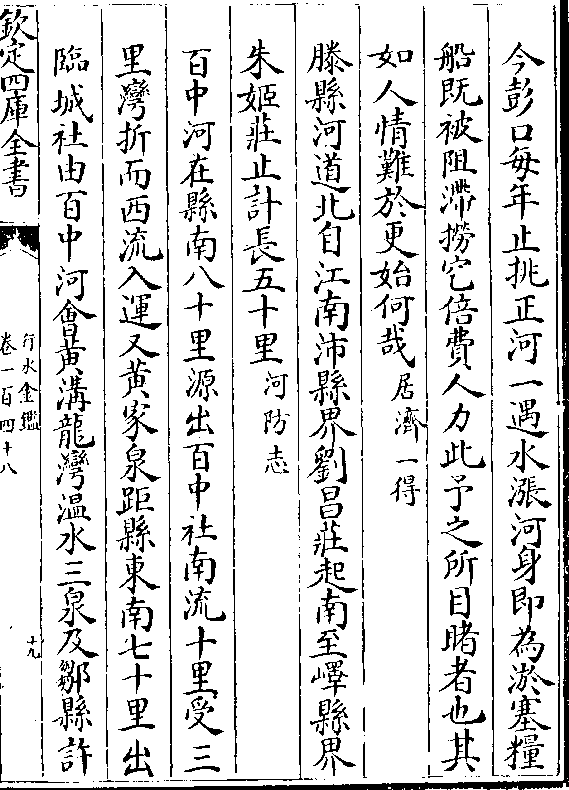 今彭口每年止挑正河一遇水漲河身即為淤塞糧
船既被阻滯撈空倍費人力此予之所目睹者也其
如人情難於更始何哉居濟一得
滕縣河道北自江南沛縣界劉昌莊起南至嶧縣界
朱姬莊止計長五十里河防志
百中河在縣南八十里源出百中社南流十里受三
里灣折而西流入運又黃家泉距縣東南七十里出
臨城社由百中河會黃溝龍灣溫水三泉及鄒縣許
欽定四庫全書
行水金鑑
卷一百四十八
十九